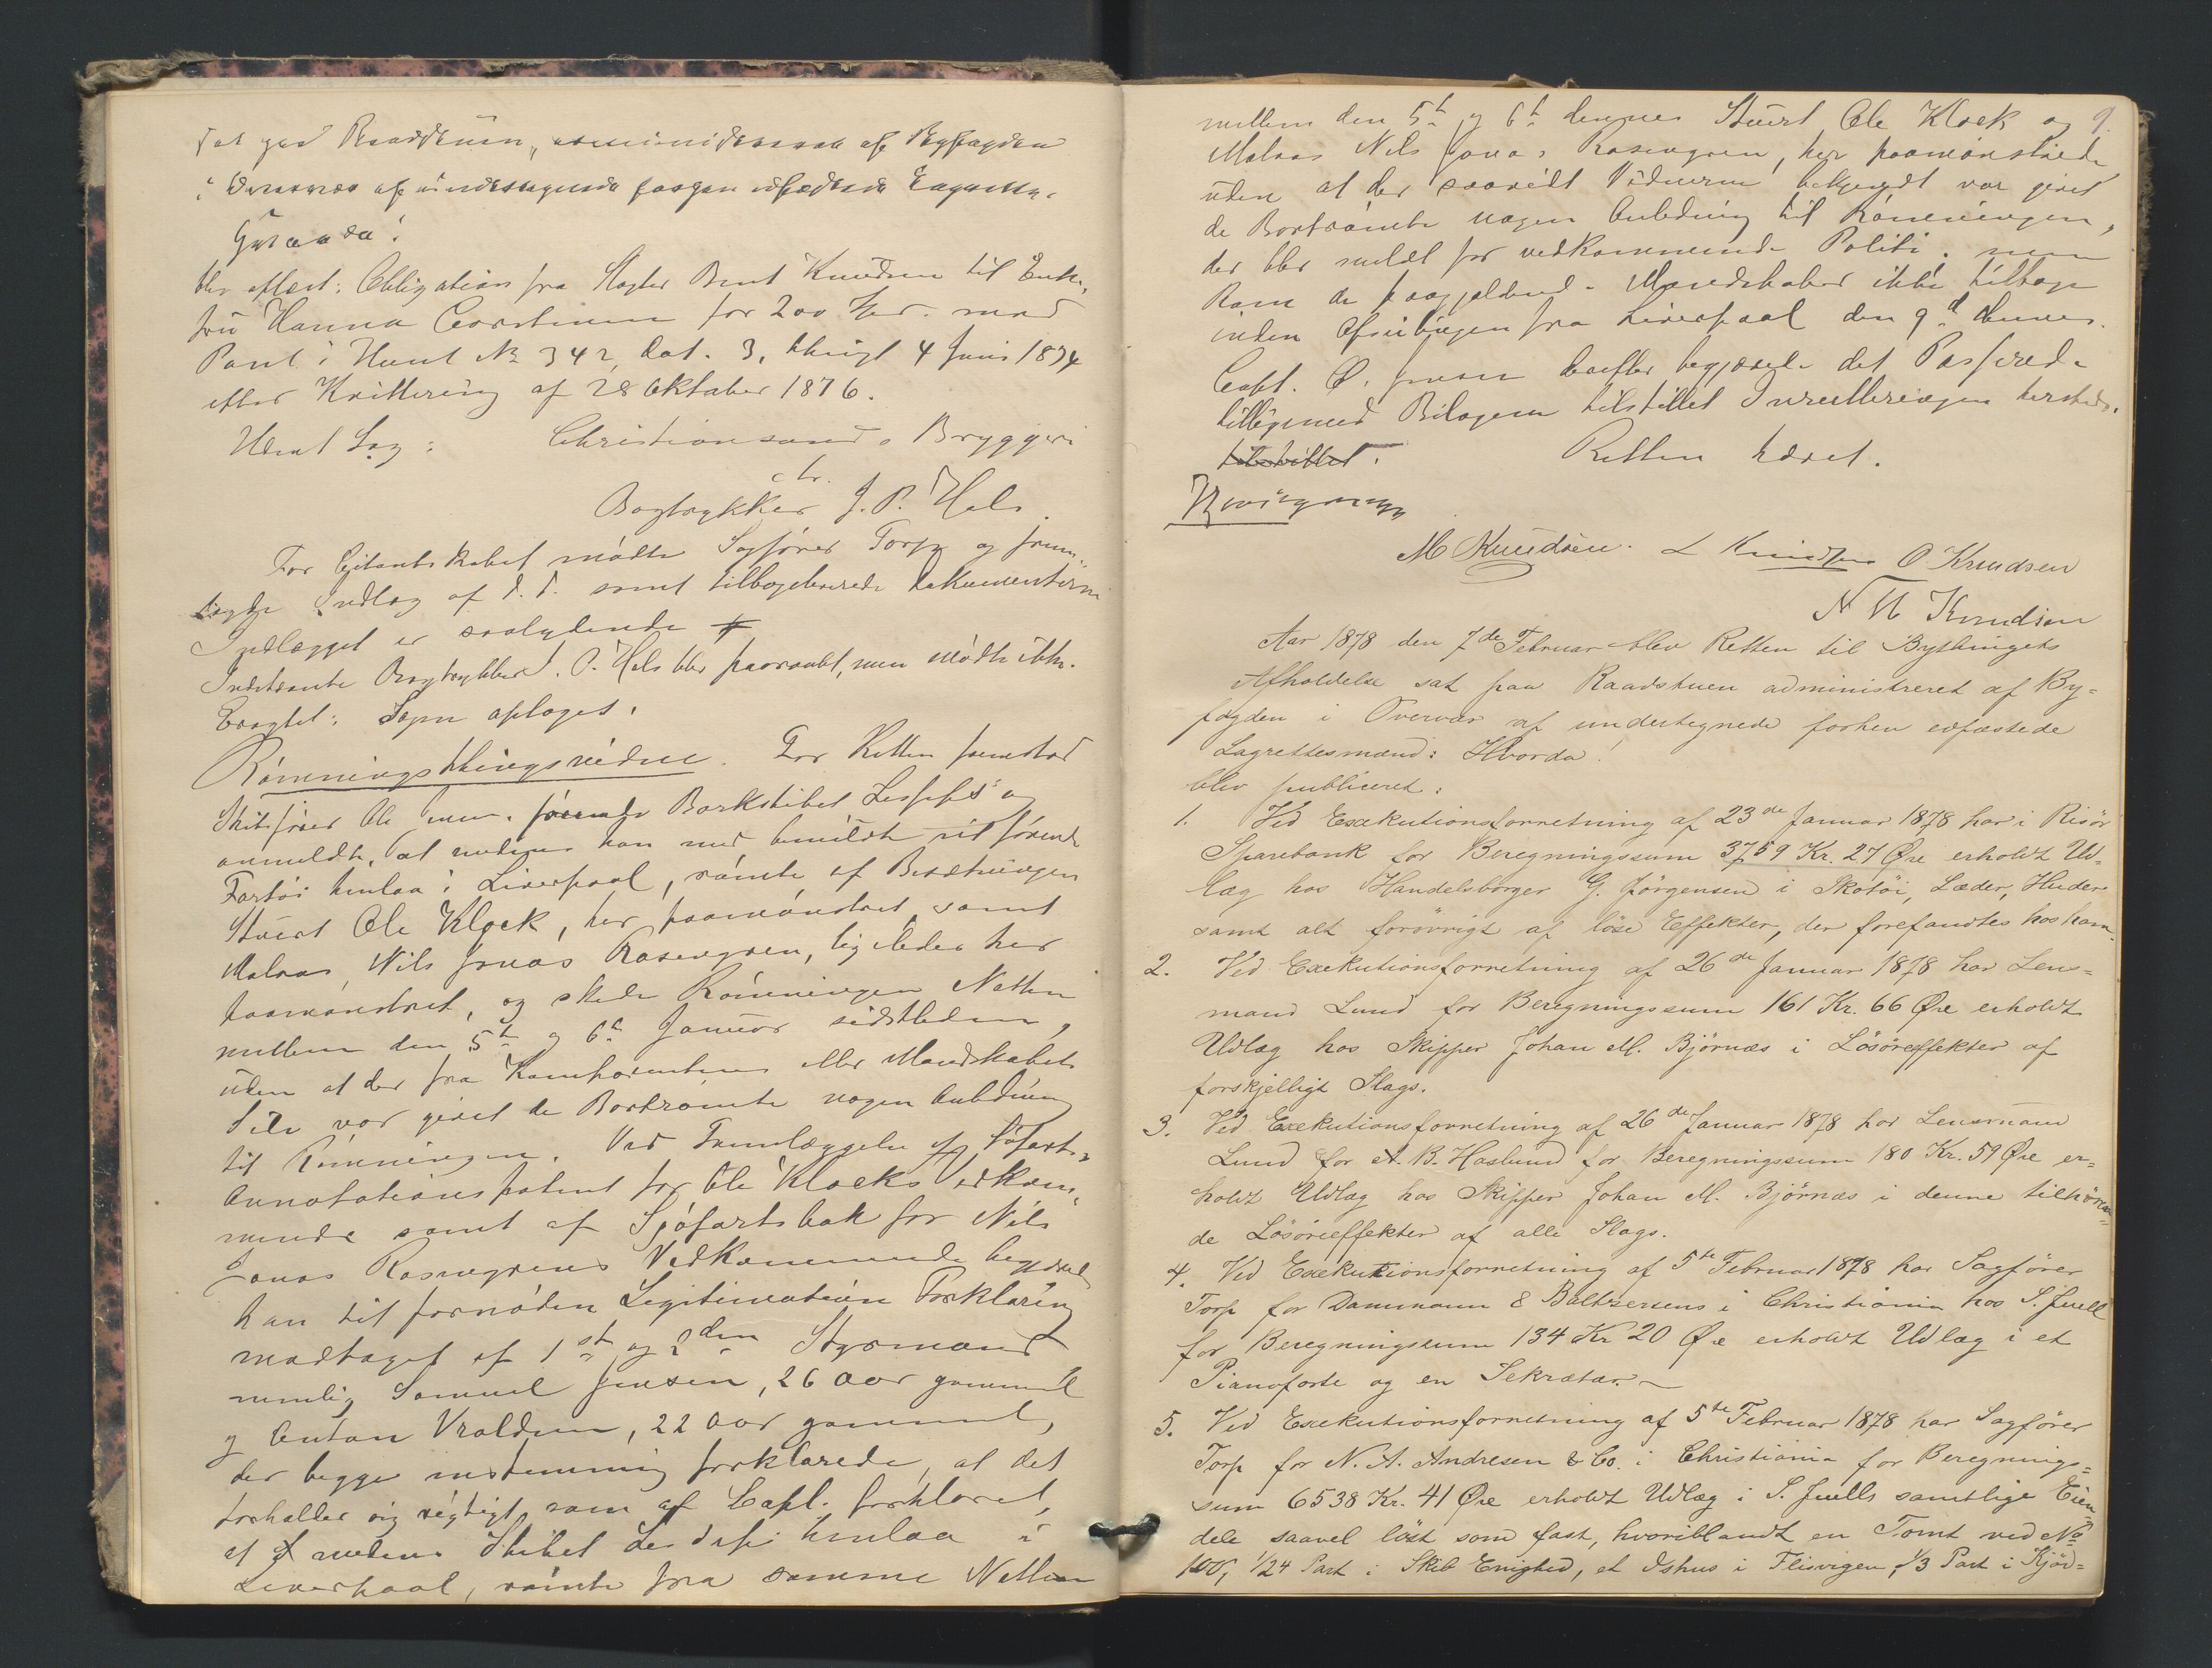 sat paa Raadstuen, administreret af Byfogden
i Overvær af undertegnede forhen edfæstede Lagrettes-
blev aflæst: Obligation fra Slagter Bent Knudsen til Enke-
fru Hanna Corstinsen for 200 Spd. med
Pant i Huset No 342, dat. 3, thingl. 4 Juni 1874
efter Kvittering af 28 Oktober 1876.
Udsat Sag: Christianssands Bryggeri
ctr.
Bogtrykker J. P. Hals.
For Citantskabet mødte Sagfører Torp og frem-
lagde Indlæg af d. d. samt tilbageleverede Dokumenterne
Indlægget er saalydende #
Indstevnte Bogtrykker J. P. Hals blev paaraabt, men mødte ikke.
Eragtet: Sagen optages.
Rømningsthingsvidne. For Retten fremstod
Skibsfører Ole Jensen, førende Barkskibet Lesseps og
anmeldte, at medens han med bemeldte sit førende
Fartøi henlaa i Liverpool, rømte af Besætningen
Stuert Ole Klock, her paamønstret, samt
Matros Nils Jonas Rosengren, ligeledes her
paamønstret, og skede Rømningen Natten
mellem den 5te og 6te Januar sidstleden,
uden at der fra Komparentens eller Mandskabets
Side var givet de Bortrømte nogen Anledning
til Rømningen. Ved Fremlæggelse af Søfarts-
Annotationspatent for Ole Klocks Vedkom-
mende samt af Sjøfartsbok for Nils
Jonas Rosengrens Vedkommende begjærede
han til fornøden Legitimation Forklaring
modtaget af 1ste og 2den Styrmand
nemlig Samuel Jensen, 26 Aar gammel
og Anton Vraldsen, 22 Aar gammel,
der begge enstemmig forklarede, at det
forholder sig rigtigt som af Capt. forklaret,
at medens Skibet Lesseps henlaa i
Liverpool, rømte fra samme Natten
9.
mellem den 5te og 6te dennes Stuert Ole Klock og
Matros Nils Jonas Rosengren, her paamønstrede
uden at der saavidt Vidnerne bekjendt var givet
de Bortrømte nogen Anledning til Rømningen,
der blev meldt for vedkommende Politi, men
kom de paagjeldende Mandskaber ikke tilbage
inden Afseilingen fra Liverpool den 9de dennes.
Capt. O. Jensen derefter begjærede det Passerede
tilligemed Bilagene tilstillet Inrulleringen hersteds.
tilstillet. Retten hævet.
M Knudsen. L Knudsen O Knudsen
N M Knudsen
Aar 1878 den 7de Februar blev Retten til Bythingets
Afholdelse sat paa Raadstuen administreret af By-
fogden i Overvær af undertegnede forhen edfæstede
Lagrettesmænd: Hvorda!
blev publiceret:
1. Ved Exekutionsforretning af 23de Januar 1878 har i Risør
Sparebank for Beregningssum 3759 Kr. 27 Øre erholdt Ud-
læg hos Handelsborger G. Jørgensen i Skotøi, Læder, Huder
samt alt forøvrigt af løse Effekter, der forefandtes hos ham.
2. Ved Exekutionsforretning af 26de Januar 1878 har Lens-
mand Lund for Beregningssum 161 Kr. 66 Øre erholdt
Udlæg hos Skipper Johan M. Bjørnæs i Løsøreffekter af
forskjelligt Slags.
3. Ved Exekutionsforretning af 26de Januar 1878 har Lensmand
Lund for A. B. Haslund for Beregningssum 180 Kr. 59 Øre er-
holdt Udlæg hos Skipper Johan M. Bjørnæs i denne tilhøren-
de Løsøreeffekter af alle Slags.
4. Ved Exekutionsforretning af 5te Februar 1878 har Sagfører
Torp for Dammann & Baltzersens i Christiania hos S. Juell
for Beregningssum 134 Kr 20 Øre erholdt Udlæg i et
Pianoforte og en Sekretær.
5. Ved Exekutionsforretning af 5te Februar 1878 har Sagfører
Torp for N. A. Andresen & Co. i Christiania for Beregnings-
sum 6538 Kr. 41 Øre erholdt Udlæg i S. Juells samtlige Eien-
dele saavel løst som fast, hvoriblandt en Tomt ved No
100, 1/24 Part i Skib Enighed, et Ishus i Flisvigen, 1/3 Part i Kjød-